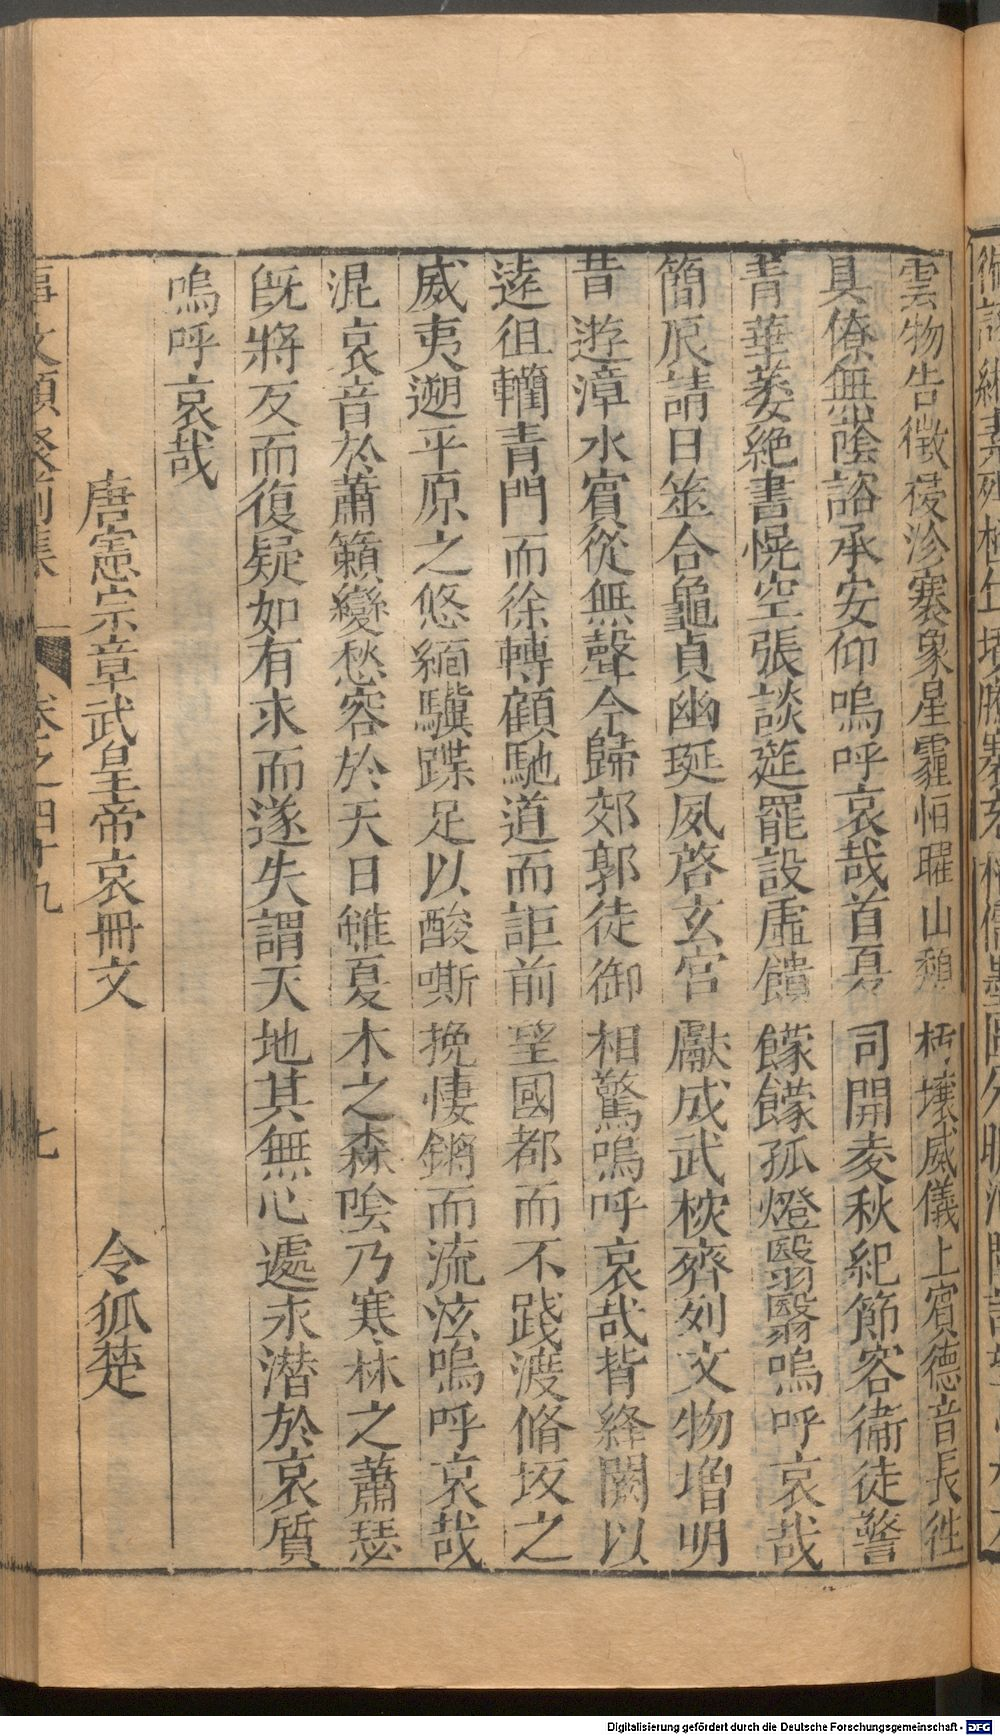 雲物告徵祲沴褰象星霾恒曜山頹朽壤威儀上賓德音長往
具僚無蔭諮承安仰嗚呼哀哉首夏司開麥秋紀節容衞徒警
青華萎絕書幌空張談筵罷設虛饋饛饛孤燈翳翳嗚呼哀哉
簡辰請日筮合龜貞幽埏夙啓玄宮獻成武校齊列文物增明
昔遊漳水賓從無聲今歸郊郭徒御相驚嗚呼哀哉背絳闕以
遠徂轥青門而徐轉顧馳道而詎前望國都而不踐渡脩坂之
威夷遡平原之悠緬驥蹀足以酸嘶挽悽鏘而流泫嗚呼哀哉
混哀音於蕭籟變愁容於天日雖夏木之森陰乃寒林之蕭瑟
旣將反而復疑如有求而遂失謂天地其無心遽永潛於哀質
嗚呼哀哉
唐憲宗章武皇帝哀冊文 令狐楚
事文類聚前集 卷之四十九 七
Digitalisierung gefördert durch die Deutsche Forschungsgemeinschaft - DFG